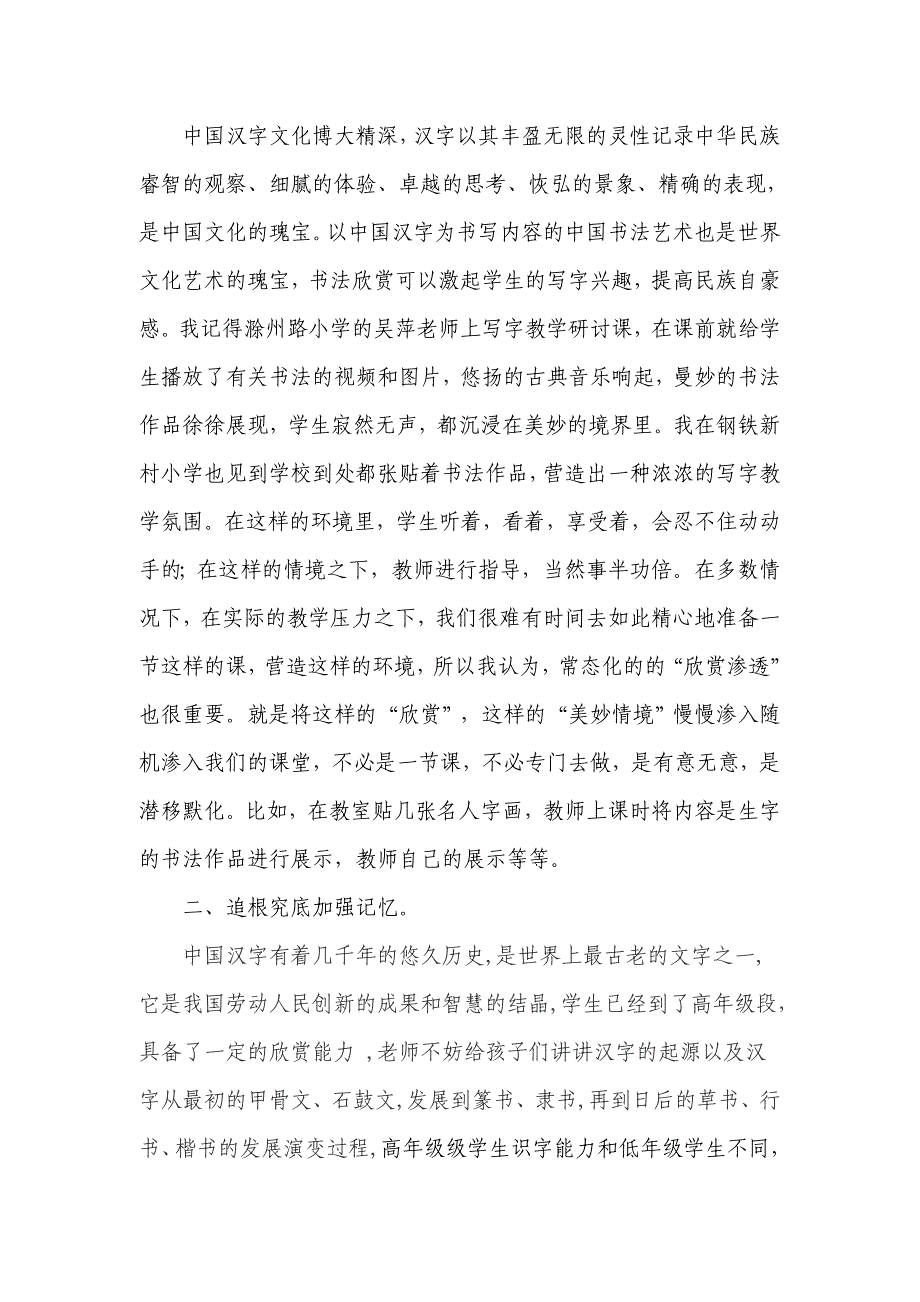 中国汉字文化博大精深，汉字以其丰盈无限的灵性记录中华民族
睿智的观察、细腻的体验、卓越的思考、恢弘的景象、精确的表现，
是中国文化的瑰宝。以中国汉字为书写内容的中国书法艺术也是世界
文化艺术的瑰宝，书法欣赏可以激起学生的写字兴趣，提高民族自豪
感。我记得滁州路小学的吴萍老师上写字教学研讨课，在课前就给学
生播放了有关书法的视频和图片，悠扬的古典音乐响起，曼妙的书法
作品徐徐展现，学生寂然无声，都沉浸在美妙的境界里。我在钢铁新
村小学也见到学校到处都张贴着书法作品，营造出一种浓浓的写字教
学氛围。在这样的环境里，学生听着，看着，享受着，会忍不住动动
手的；在这样的情境之下，教师进行指导，当然事半功倍。在多数情
况下，在实际的教学压力之下，我们很难有时间去如此精心地准备一
节这样的课，营造这样的环境，所以我认为，常态化的的“欣赏渗透”
也很重要。就是将这样的“欣赏”，这样的“美妙情境”慢慢渗入随
机渗入我们的课堂，不必是一节课，不必专门去做，是有意无意，是
潜移默化。比如，在教室贴几张名人字画，教师上课时将内容是生字
的书法作品进行展示，教师自己的展示等等。
二、追根究底加强记忆。
中国汉字有着几千年的悠久历史,是世界上最古老的文字之一,
它是我国劳动人民创新的成果和智慧的结晶,学生已经到了高年级段,
具备了一定的欣赏能力 ,老师不妨给孩子们讲讲汉字的起源以及汉
字从最初的甲骨文、石鼓文,发展到篆书、隶书,再到日后的草书、行
书、楷书的发展演变过程,高年级级学生识字能力和低年级学生不同，